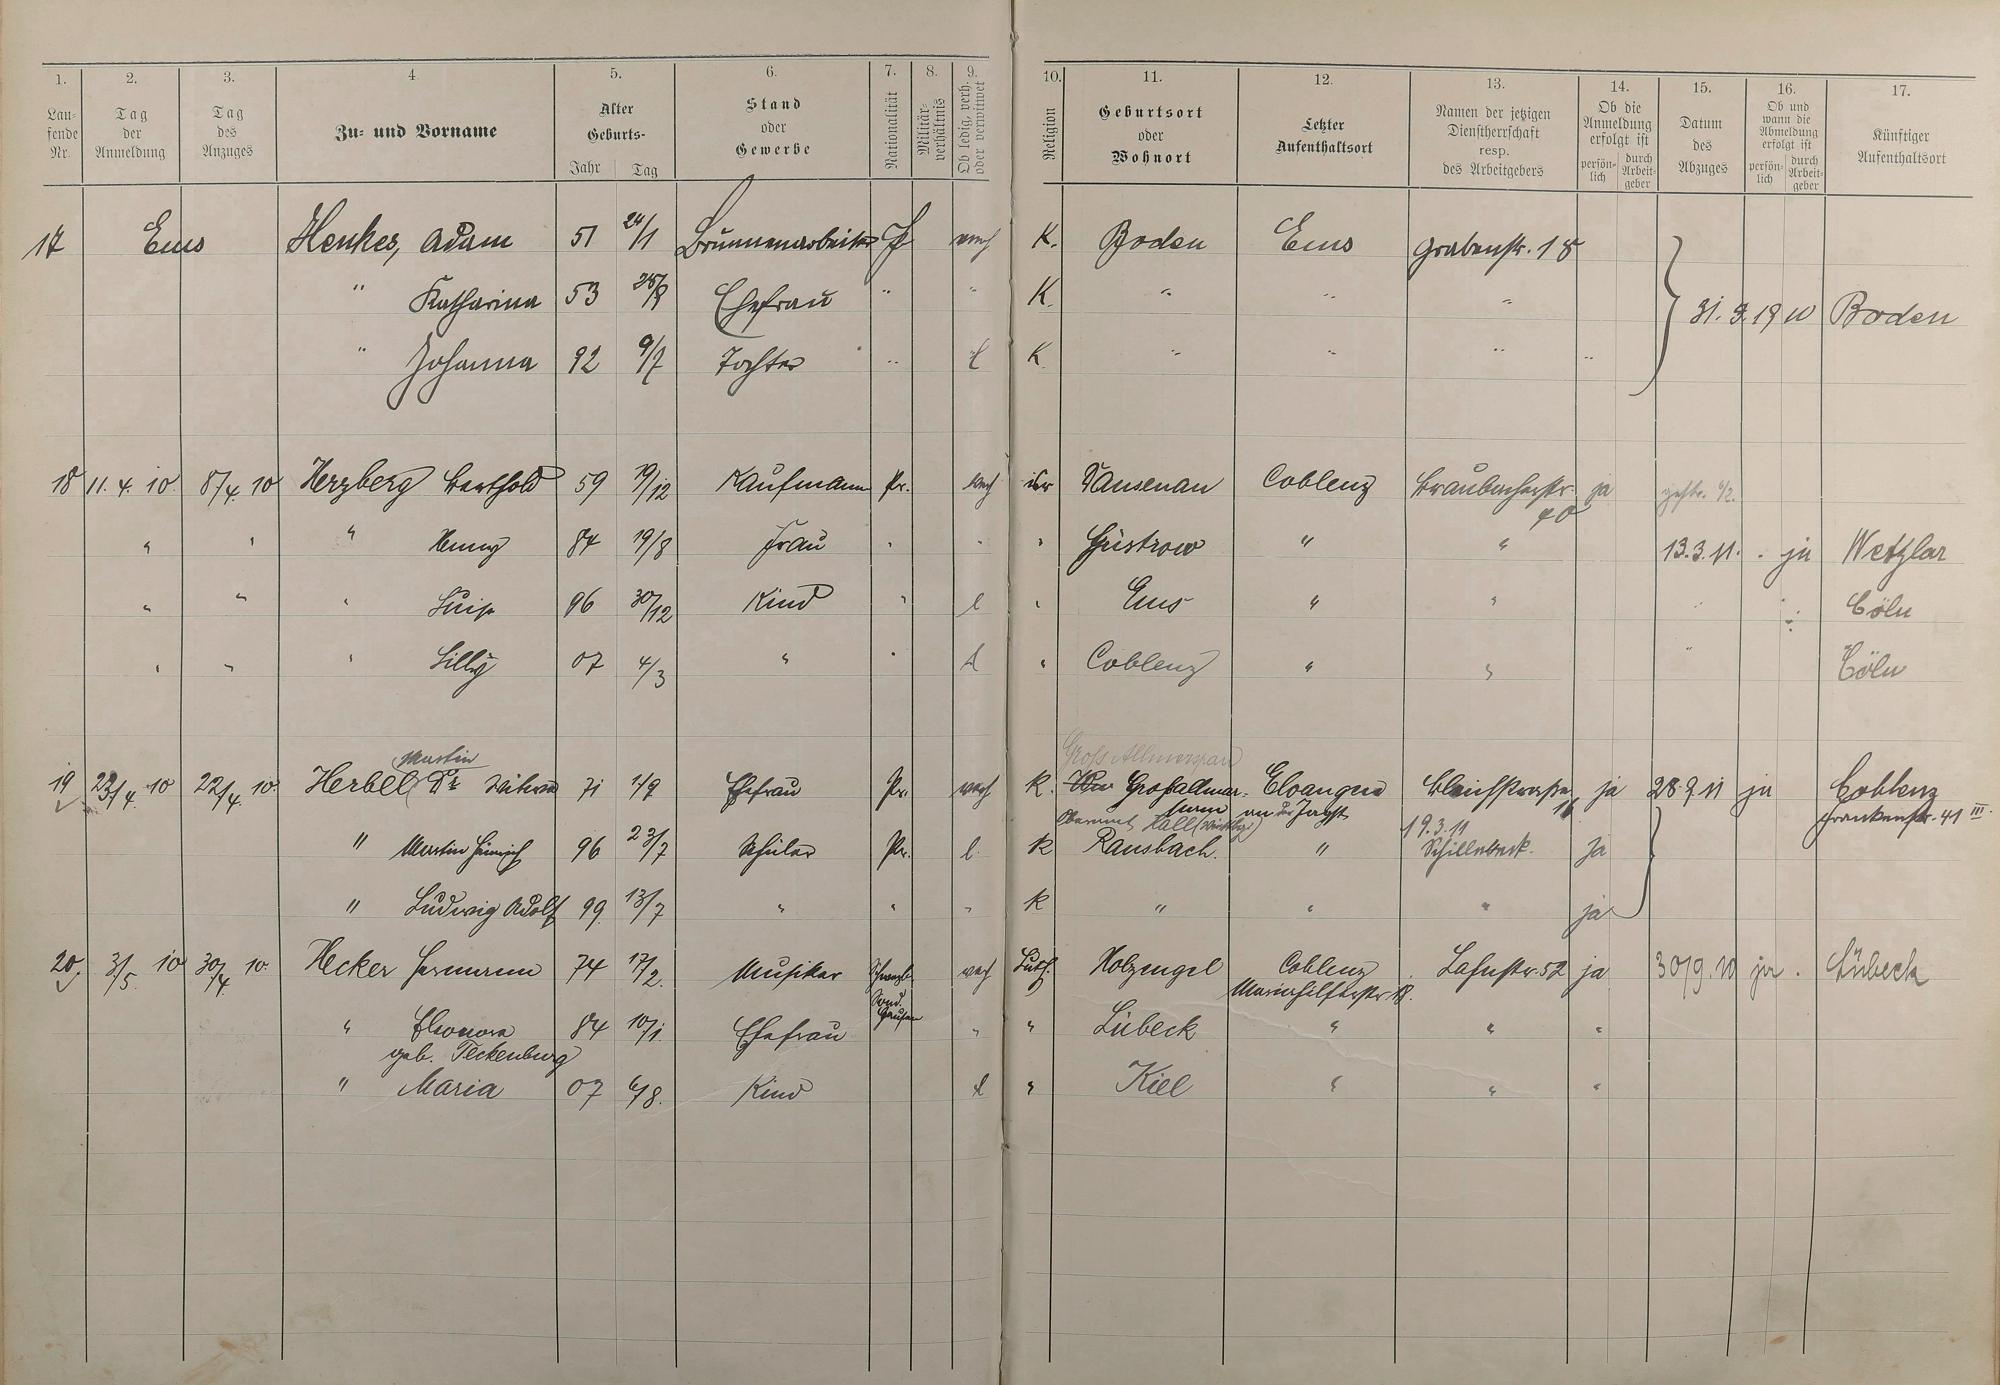 1. 2. 3. 4 5. 6. 7. 8. 9. 10. 11. 12. 13. 14. 15. 16. 17.
Lau-fende Nr.
Tag der Anmeldung
Tag des Anzuges
Zu- und Vorname
Alter Geburts- Jahr Tag
Stand oder Gewerbe
Nationalität
Militär-verhältnis
Ob ledig, verh. oder verwitwet
Religion
Geburtsort oder Wohnort
Letzter Aufenthaltsort
Namen der jetzigen Dienstherrschaft resp. des Arbeitgebers
Ob die Anmeldung erfolgt ist persön-lich durch Arbeit-geber
Datum des Abzuges
Ob und wann die Abmeldung erfolgt ist persön-lich durch Arbeit-geber
Künftiger Aufenthaltsort
17 Ems Henkes, Adam 51 24/1 Brunnenarbeiter verh K. Boden Ems Grabenstr. 18
" Katharina 53 Ehefrau " " K. " " " 31. 3. 1910 Boden
" Johanna 92 9/7 Tochter " l K " " " "
18 11. 4. 10. 8/4. 10 Herzberg Berthold 59 19/12 Kaufmann Pr. verh isr Dausenau Coblenz Braubacherstr. 40 ja gestr.
" " " Henny 84 19/8 Frau " " " Güstrow " " 13. 3. 11. . ja Wetzlar
" " " Luise 96 30/12 Kind " l " Ems " " " Cöln
" " " Lilly 07 4/3 " " l " Coblenz " " " Cöln
Martin
Gross Allmerspan
19 23/4. 10 22/4. 10. Herbel Dr 71 1/9 Ehefrau Pr. verh K. Großallmer- Elvangen Bleichstrasse 16 ja 28. 9. 11 ja Coblenz
an der Jagst Frankenstr. 41 III.
Oberamt Hall
19. 3. 11
" Martin Heinrich 96 23/7 Schüler Pr. l. K Ransbach. " ja
" Ludwig Adolf 99. 13/7 " " " K " " " ja
20, 3/5. 10 30/4. 10. Hecker Hermann 74 17/2. Musiker verh Luth. Holzengel Coblenz Lahnstr. 52 ja 30/9. 10 ja . Lübeck
Sond. hausen Mariahilferstr. 18.
" Eleonora 84 10/1. Ehefrau " " Lübeck " " "
geb. Teckenburg
" Maria 07 6/8. Kind l " Kiel " " "